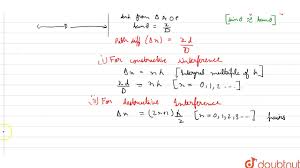 from ΔAOP
tanθ = x/D
[sinθ ≈ tanθ]
path diff (Δx) = xd/D
(i) For constructive interference
Δx = nλ [Integral multiple of λ]
xd/D = nλ [n = 0, 1, 2 ...]
(2) For destructive Interference
Δx = (2n+1) λ/2 [n = 0, 1, 2, 3 ...]
doubtnut